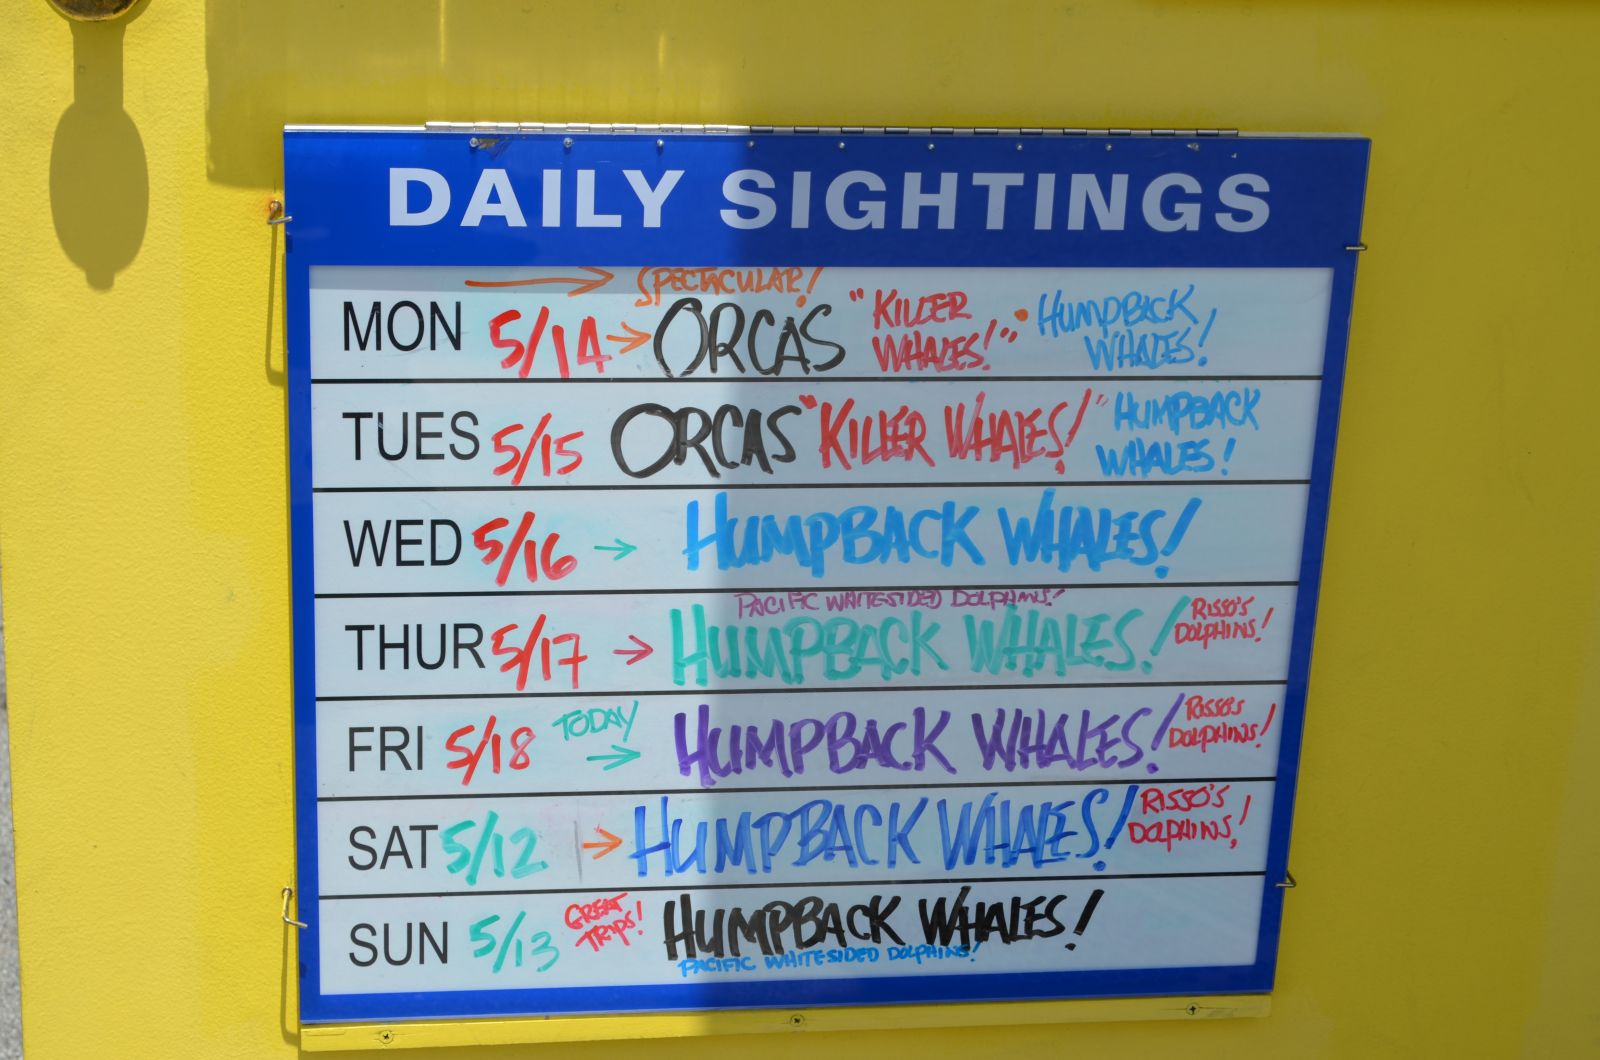 DAILY SIGHTINGS
SPECTACULAR!
MON 5/14 ORCAS "KILLER WHALES!" HUMPBACK WHALES!
TUES 5/15 ORCAS "KILLER WHALES!" HUMPBACK WHALES!
WED 5/16 HUMPBACK WHALES!
PACIFIC WHITESIDED DOLPHINS!
THUR 5/17 HUMPBACK WHALES! RISSO'S DOLPHINS!
FRI 5/18 TODAY HUMPBACK WHALES! RISSO'S DOLPHINS!
SAT 5/12 HUMPBACK WHALES! RISSO'S DOLPHINS!
SUN 5/13 GREAT TRIPS! HUMPBACK WHALES!
PACIFIC WHITESIDED DOLPHINS!